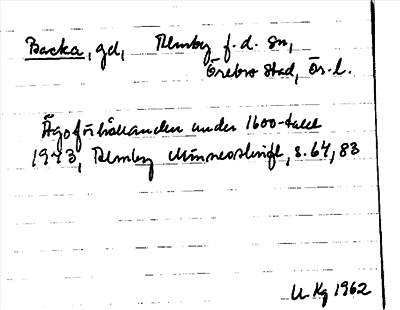 Backa, gd, Almby f.d. sn,
Örebro stad, Ör. l.
Ägoförhållanden under 1600-talet
1943, Almby Minnesskrift, s. 64, 83
U. Kg 1962